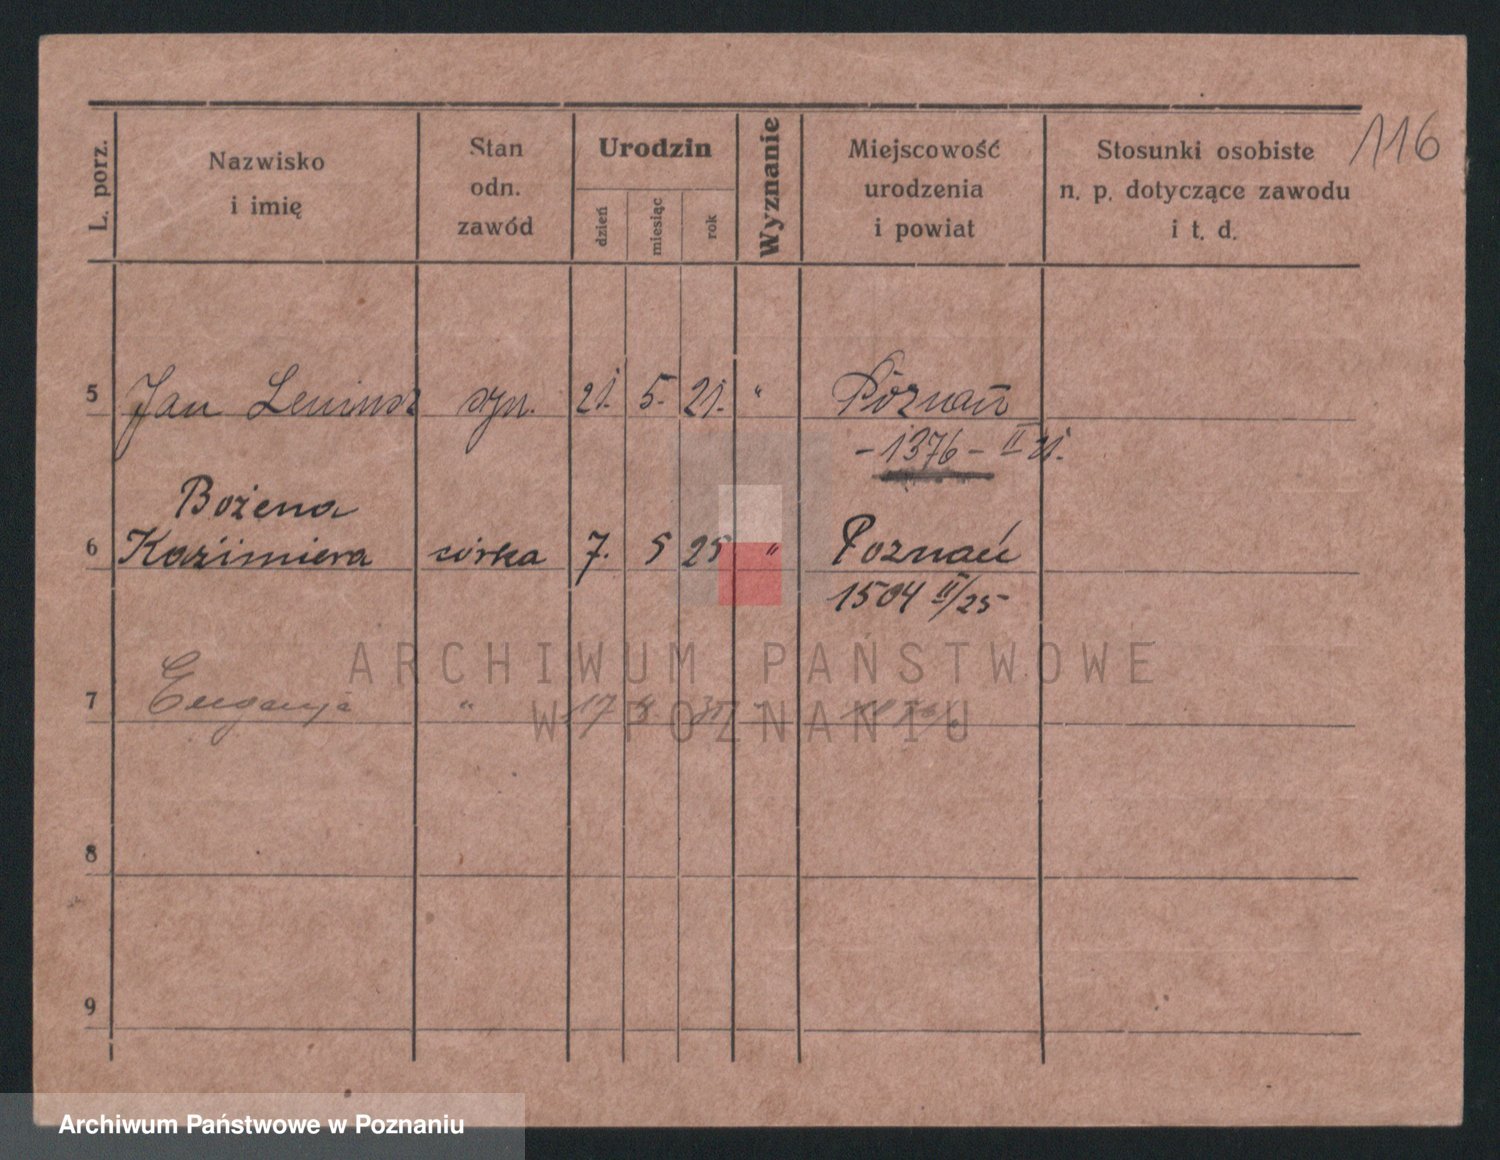 116
L. porz.
Nazwisko
i imię
Stan
odn.
zawód
Urodzin
dzień
miesiąc
rok
Wyznanie
Miejscowość
urodzenia
i powiat
Stosunki osobiste
n. p. dotyczące zawodu
i t. d.
5 Jan syn. 21. 5. 21. " Poznań
-1376- II 21.
Bożena
6 Kazimiera córka 7. 5 25 " Poznań
1504 II/25
7 Eugenja " 17
8
9
ARCHIWUM PAŃSTWOWE
W POZNANIU
Archiwum Państwowe w Poznaniu